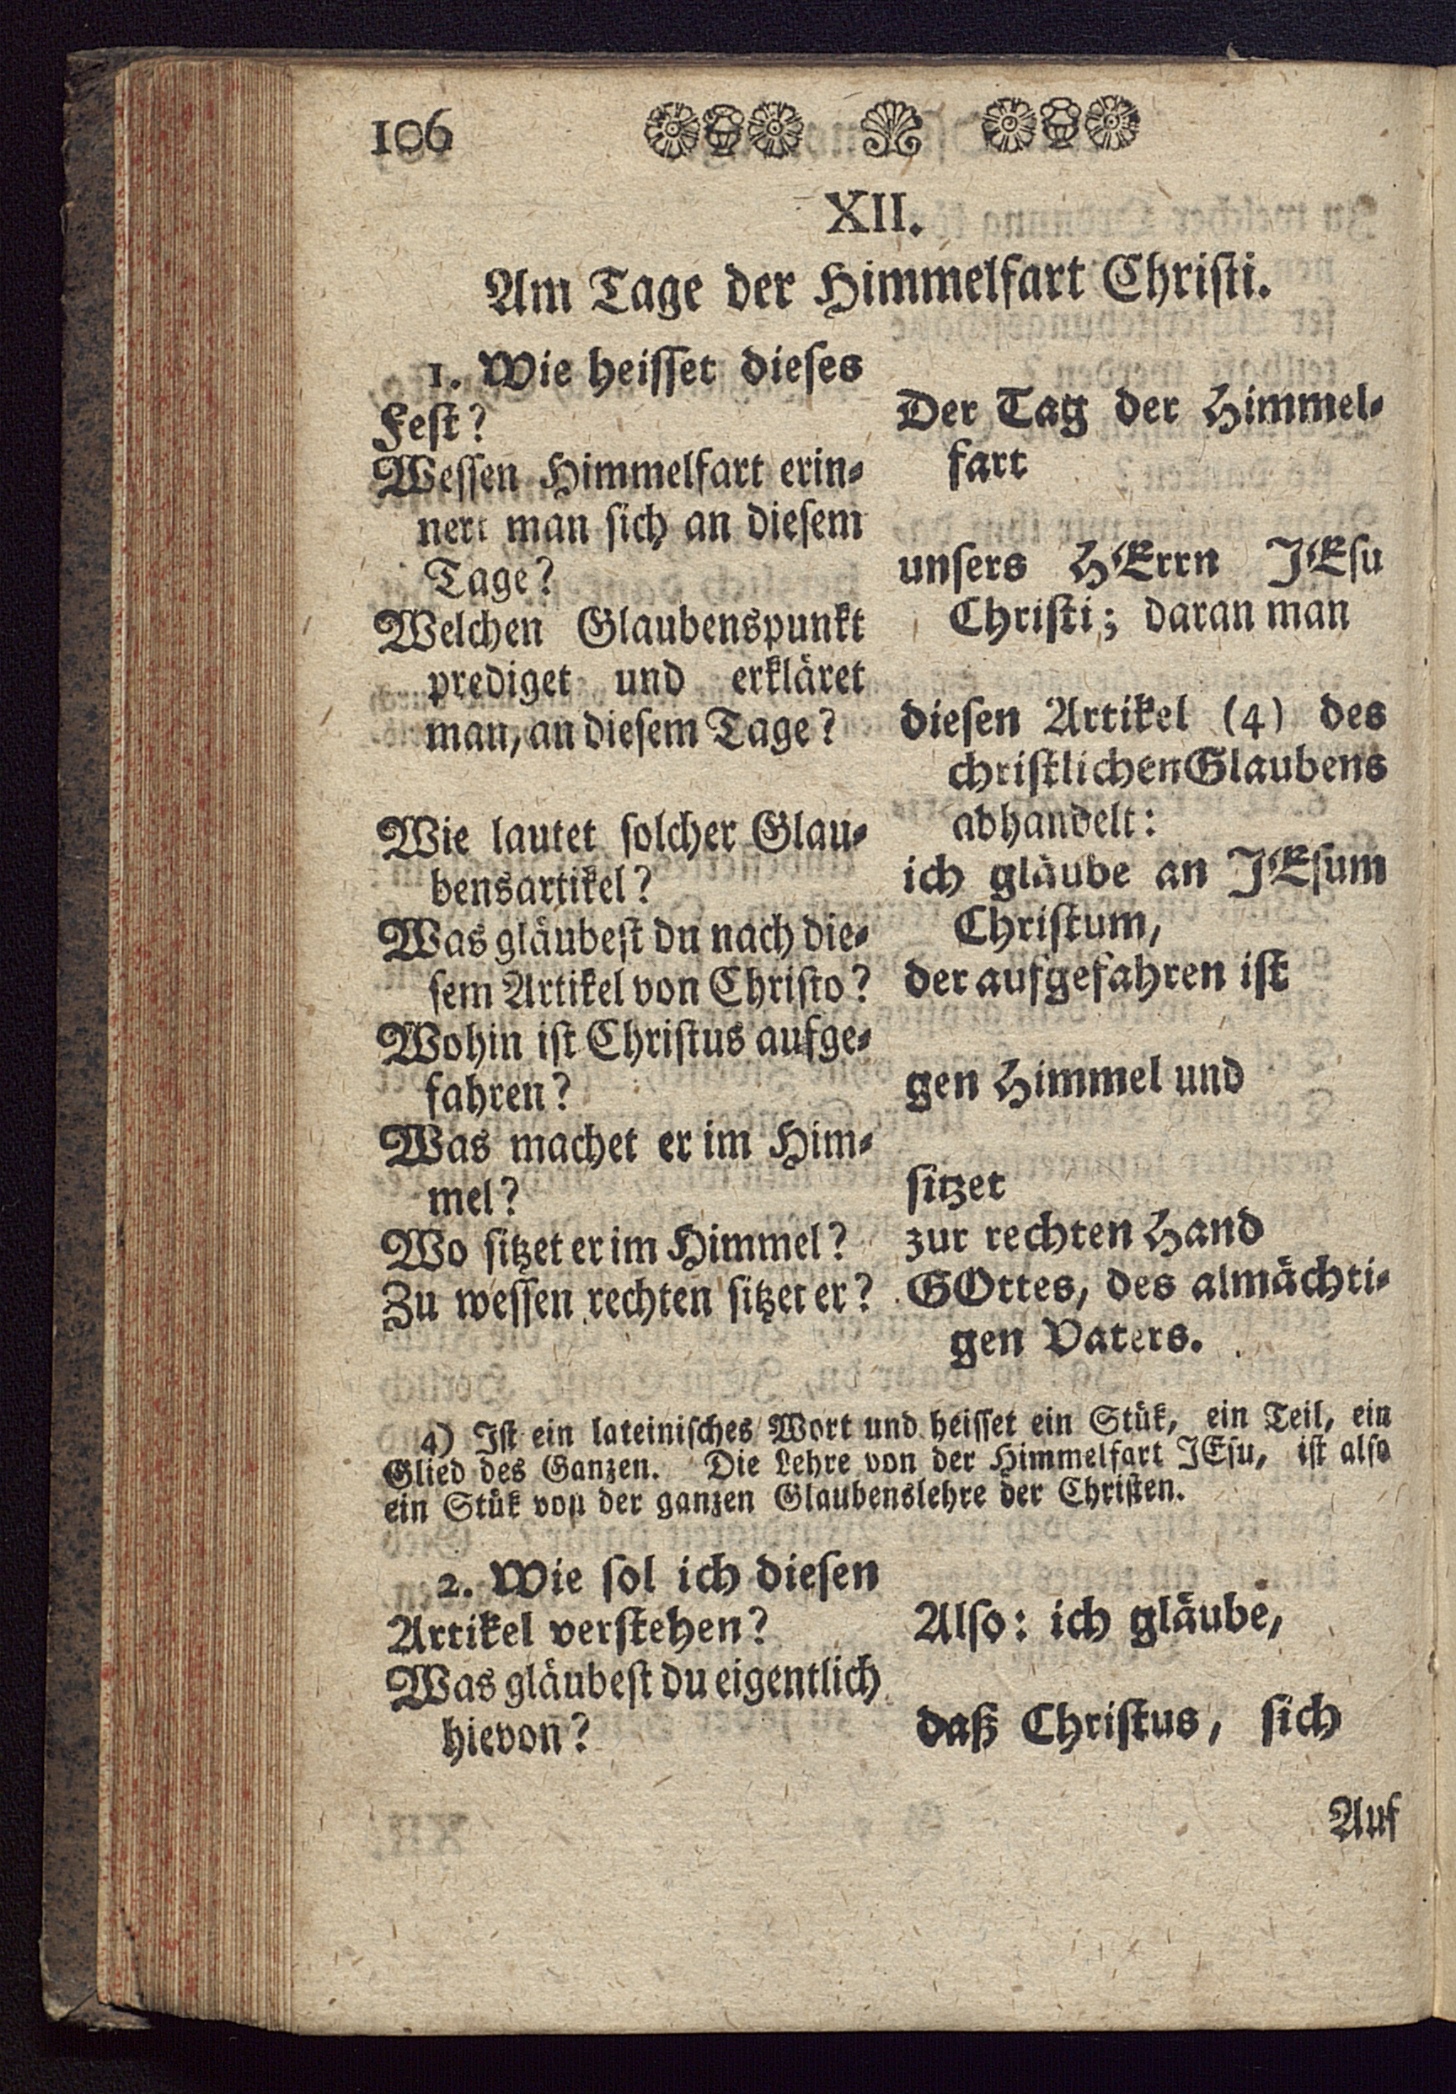 106
XII.
Am Tage der Himmelfart Christi.
1. Wie heisset dieses
Fest?
Wessen Himmelfart erin-
nert man sich an diesem
Tage?
Welchen Glaubenspunkt
prediget und erkläret
man, an diesem Tage?
Wie lautet solcher Glau-
bensartikel?
Was gläubest du nach die-
sem Artikel von Christo?
Wohin ist Christus aufge-
fahren?
Was machet er im Him-
mel?
Wo sitzet er im Himmel?
Zu wessen rechten sitzet er?
Der Tag der Himmel-
fart
unsers HErrn JEsu
Christi; daran man
diesen Artikel (4) des
christlichen Glaubens
abhandelt:
ich gläube an JEsum
Christum,
der aufgefahren ist
gen Himmel und
sitzet
zur rechten Hand
GOttes, des almächti-
gen Vaters.
4) Ist ein lateinisches Wort und heisset ein Stük, ein Teil, ein
Glied des Ganzen. Die Lehre von der Himmelfart JEsu, ist also
ein Stük von der ganzen Glaubenslehre der Christen.
2. Wie sol ich diesen
Artikel verstehen?
Was gläubest du eigentlich
hievon?
Also: ich gläube,
daß Christus, sich
Auf